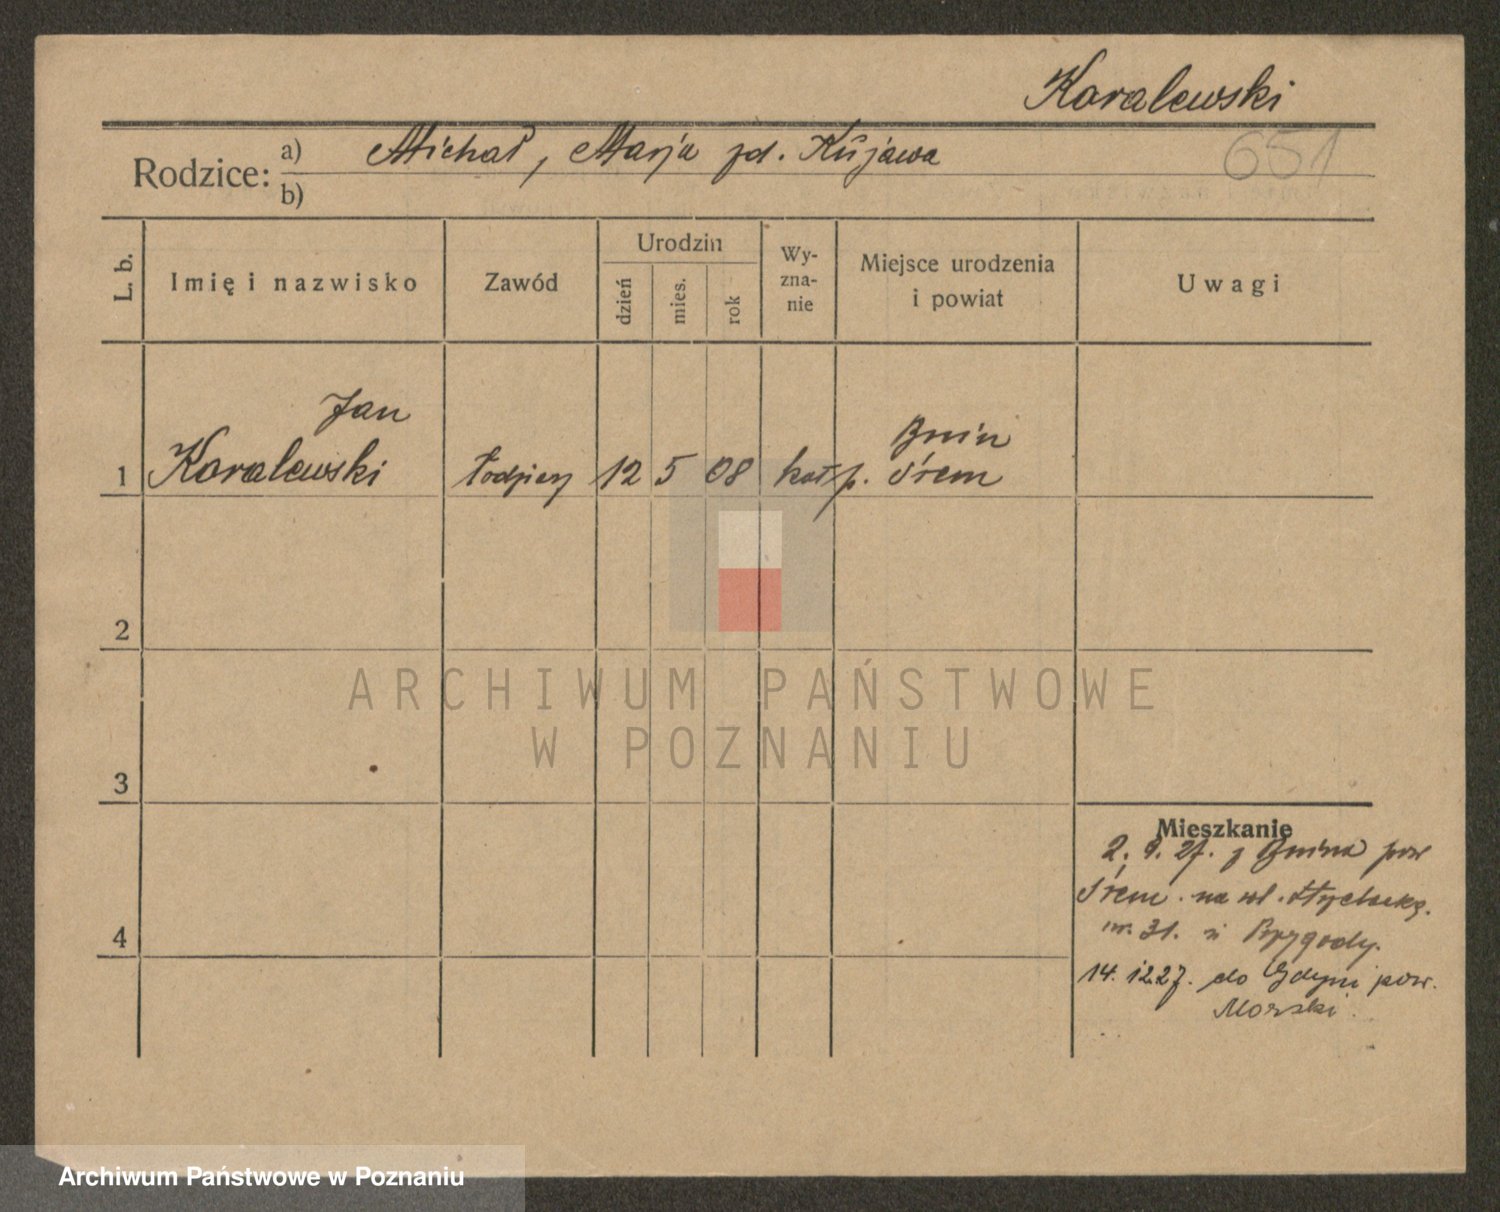 Koralewski
651
Rodzice: a) Michał, Marja zd. Kujawa
b)
L. b.
Imię i nazwisko
Zawód
Urodzin
dzień
mies.
rok
Wy-
zna-
nie
Miejsce urodzenia
i powiat
Uwagi
Jan
1 Koralewski 12 5 08 kat
Bnin
p. Śrem
2
3
4
ARCHIWUM PAŃSTWOWE
W POZNANIU
Mieszkanie
2. 9. 27. z Bnina pow
Śrem. na ul.
nr. 31.
14. 12 27. do Gdyni pow.
Morski.
Archiwum Państwowe w Poznaniu